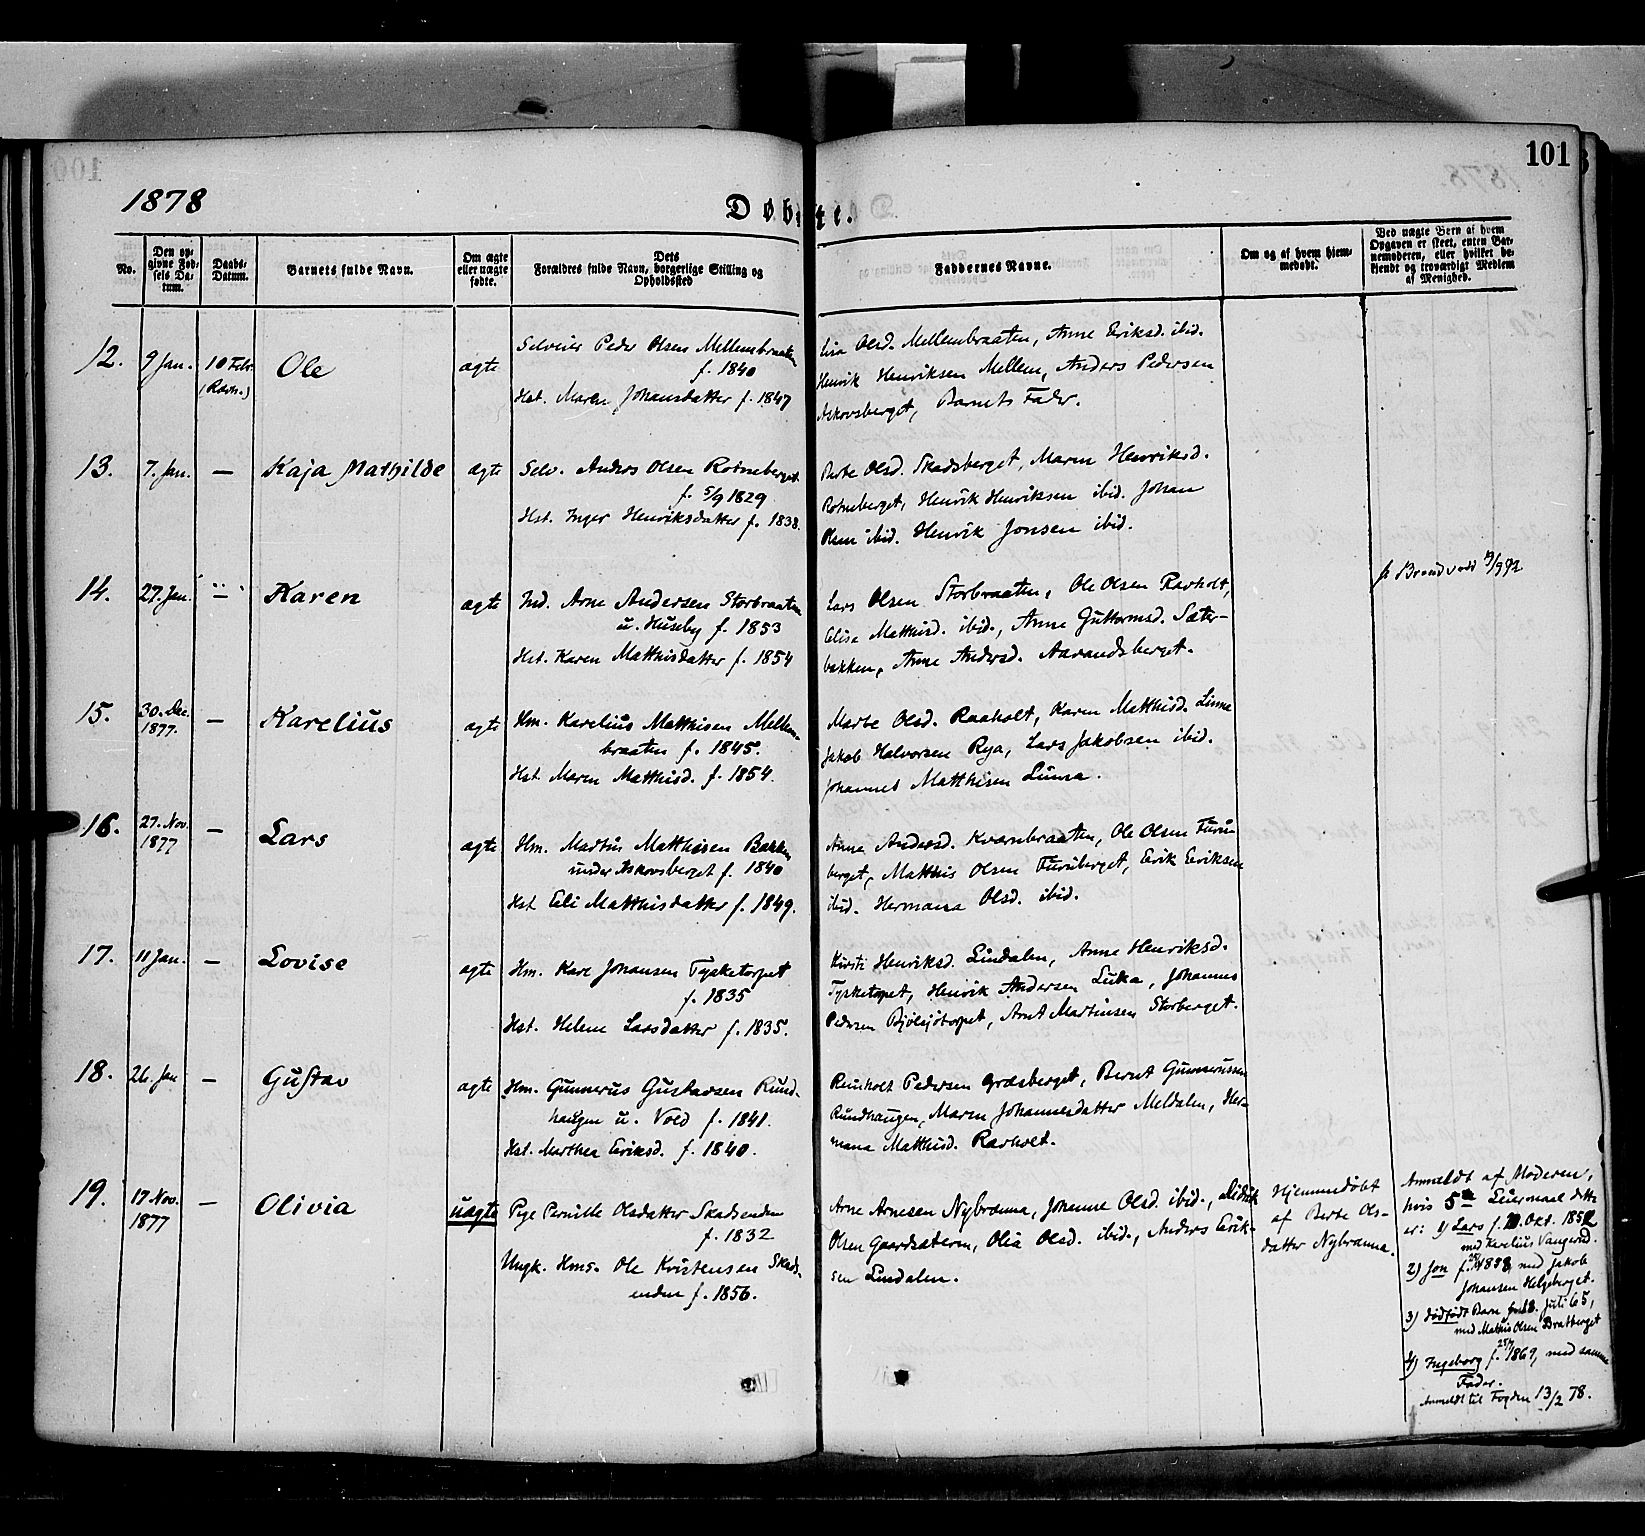 101
1878
Døbte.
No.
Den opgivne Fødsels Datum.
Daabs-Datum.
Barnets fulde Navn.
Om ægte eller uægte fødte.
Dets Forældres fulde Navn, borgerlige Stilling og Opholdssted
Faddernes Navne.
Om og af hvem hjemmedøbt.
Ved uægte Børn af hvem Opgaven er skeet, enten Barnemoderen, eller hvilket bekjendt og troværdigt Medlem af Menighed.
12. 9 Jan. 10 Febr. (Ravn.) Ole ægte
Selveier Peder Olsen Mellembraaten
f. 1840
Hst. Maren Johansdatter f. 1847
Olsd. Mellembraaten, Anne Eriksd. ibid.
Henrik Henriksen Mellem, Anders Pedersen
Askovsberget, Barnets Fader.
13. 7. Jan. — Kaja Mathilde ægte
Selv. Anders Olsen Rotneberget
f. 5/9 1829
Hst. Inger Henriksdatter f. 1838.
Berte Olsd. Skadsberget, Maren Henriksd.
Rotneberget, Henrik Henriksen ibid. Johan
Olsen ibid. Henrik Jonsen ibid.
14. 27. Jan. — Karen ægte
Ind. Arne Andersen Storbraaten
u. Huseby f. 1853
Hst. Karen Matthisdatter f. 1854
Lars Olsen Storbraaten, Ole Olsen Ravholt,
Elise Matthisd. ibid., Anne Guttormsd. Sæter-
bakken, Anne Andersd. Aarandsberget.
15. 30. Dec. 1877. — Karelius ægte
Hm. Karelius Matthisen Mellem-
braaten f. 1845.
Hst. Maren Matthisd. f. 1854.
Marte Olsd. Raaholt, Karen Matthisd. Linna
Jakob Halvorsen Rya, Lars Jakobsen ibid.
Johannes Matthisen Linna.
16. 27. Nov. 1877 — Lars ægte
Hm. Martin Matthisen Bakken
under Askovsberget f. 1840
Hst Eli Matthisdatter f. 1849.
Anne Andersd. Kvernbraaten, Ole Olsen Furu-
berget, Matthis Olsen Furuberget, Erik Eriksen
ibid. Hermana Olsd. ibid.
17. 11 Jan. — Lovise ægte
Hm. Karl Johansen Tysketorpet
f. 1835
Hst. Helene Larsdatter f. 1835.
Kirsti Henriksd. Lindalen, Anne Henriksd.
Tysketorpet, Henrik Andersen Lutka, Johannes
Pedersen Bjølsjötorpet, Arnt Martinsen Storberget.
18. 26. Jan — Gustav ægte
Hm. Gunnerus Gustavsen Rund-
haugen u. Vold f. 1841.
Hst. Marthea Eriksd. f. 1840.
Reinholt Pedersen Græsberget, Bernt Gunnerussen
Rundhaugen, Maren Johannesdatter Meldalen, Her-
mana Matthisd. Ravholt.
19. 17 Nov. 1877 — Olivia uægte
Pige Pernille Olsdatter Skadsenden
f. 1832
Ungk. Hms. Ole Kristensen Skads-
enden f. 1856.
Arne Arnesen Nybrænna, Johanne Olsd. ibid., Didrik
Olsen Gaardsæteren, Olia Olsd. ibid., Anders Erik-
sen Lindalen.
Hjemmedøbt
af Berte Ols-
datter Nybrænna.
Anmeldt af Moderen,
hvis 5te Leiermaal dette
er: 1) Lars f. Okt. 1852
med Karelius Vangerud.
2) Jon f. 1858, med Jakob
Johansen Helgeberget.
3) dødfødt Barn Juli 65,
med Mathis Olsen Bratberget
4) Ingeborg f. 1869, med samme
Fader.
Anmeldt til Fogden 13/2 78.